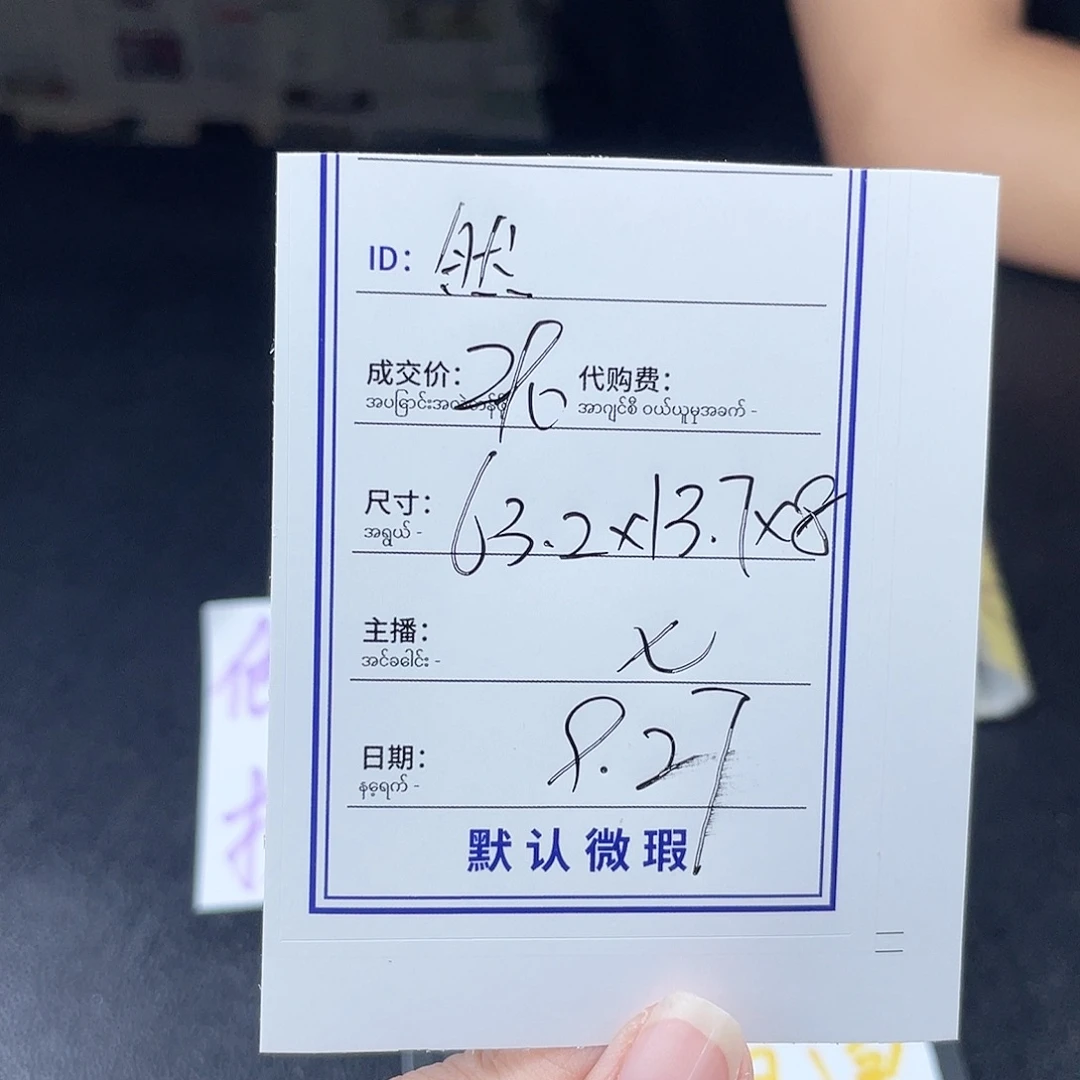 ID: 然
成交价: 290 代购费:
အပြောင်းအလဲတန်ဖိုး အာဂျင်စီ ဝယ်ယူမှုအခက် -
尺寸: 63.2x13.7x8
အရွယ် -
主播: x
အင်ခေါင်း -
日期: 9.27
နေ့ရက် -
默认微瑕